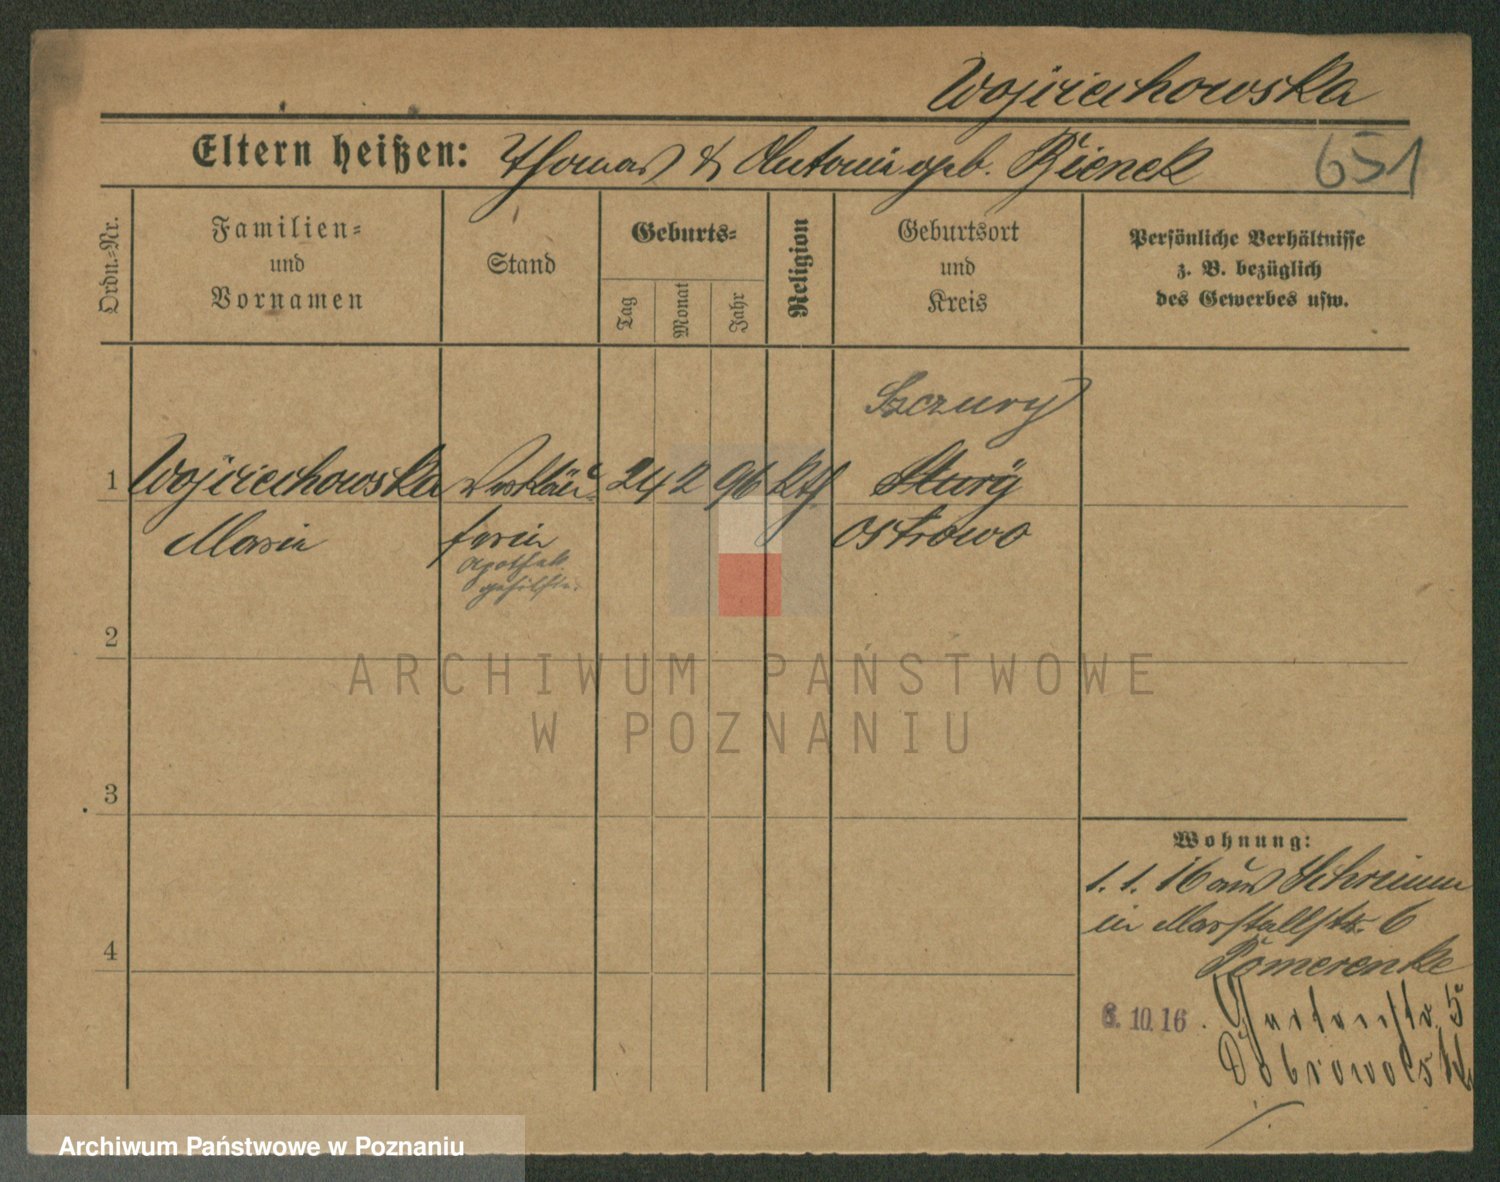 Wojciechowska
Eltern heißen: Thomas & Antonie geb. Bienek
651
Ordn.-Nr.
Familien-
und
Vornamen
Stand
Geburts-
Tag
Monat
Jahr
Religion
Geburtsort
und
Kreis
Persönliche Verhältnisse
z. B. bezüglich
des Gewerbes usw.
Szczury
1 Wojciechowska Verkäu- 24 2 96 kth
Maria ferin Ostrowo
Apothek.
gehilfin.
2
3
4
Wohnung:
1. 1. 16 aus Schrimm
in Marstallstr. 6
Pomerenke
8. 10. 16 . Gartenstr. 5
Dobrowolski
ARCHIWUM PAŃSTWOWE
W POZNANIU
Archiwum Państwowe w Poznaniu